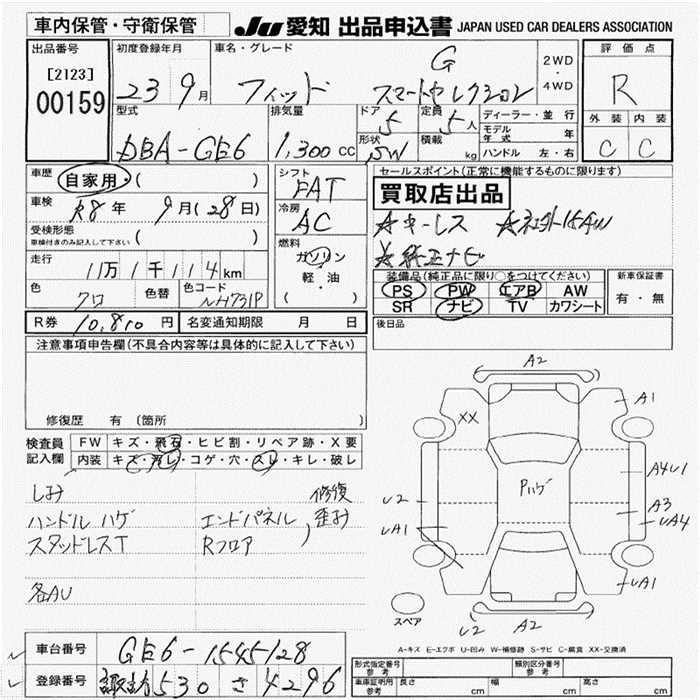 車内保管・守衛保管
JU 愛知 出品申込書 JAPAN USED CAR DEALERS ASSOCIATION
出品番号
[2123]
00159
初度登録年月
23年9月
車名・グレード
フィット
G
スマートセレクション
2WD
・
4WD
評価点
R
外装 内装
C C
型式
DBA-GE6
排気量
1,300 cc
ドア
5
定員
5人
形状
5W
積載
kg
ディーラー・並行
モデル年式 年
ハンドル 左・右
車歴
自家用・( )
車検
R8年 9月(28日)
受検形態
車検付きのみ記入して下さい ( )
走行
11万1千114km
色
クロ
色替
色コード
NH731P
シフト
FAT
冷房
AC
燃料
ガソリン
軽・油
( )
セールスポイント(正常に機能するものに限ります)
買取店出品
☆キーレス ☆社外15AW
☆純正ナビ
装備品(純正品に限り○をつけてください)
PS PW エアB AW
SR ナビ TV カワシート
新車保証書
有・無
R券 10,810円
名変通知期限 月 日
後日品
注意事項申告欄(不具合内容等は具体的に記入して下さい)
修復歴 有 (箇所 )
検査員
記入欄
FW キズ・飛石・ヒビ割・リペア跡・X要
内装 キズ・汚レ・コゲ・穴・スレ・キレ・破レ
しみ
ハンドルハゲ
スタッドレスT
各AU
エンドパネル
Rフロア
修復
歪み
A2
XX
A1
Pハゲ
A4U1
U2
A3
UA4
UA1
UA1
スペア
U2
A2
A-キズ E-エクボ U-凹み W-補修跡 S-サビ C-腐食 XX-交換済
車台番号 GE6-1545128
登録番号 諏訪 530 さ 4296
形式指定番号
参考
類別区分番号
参考
車庫証明用
参考
長さ cm
幅 cm
高さ cm